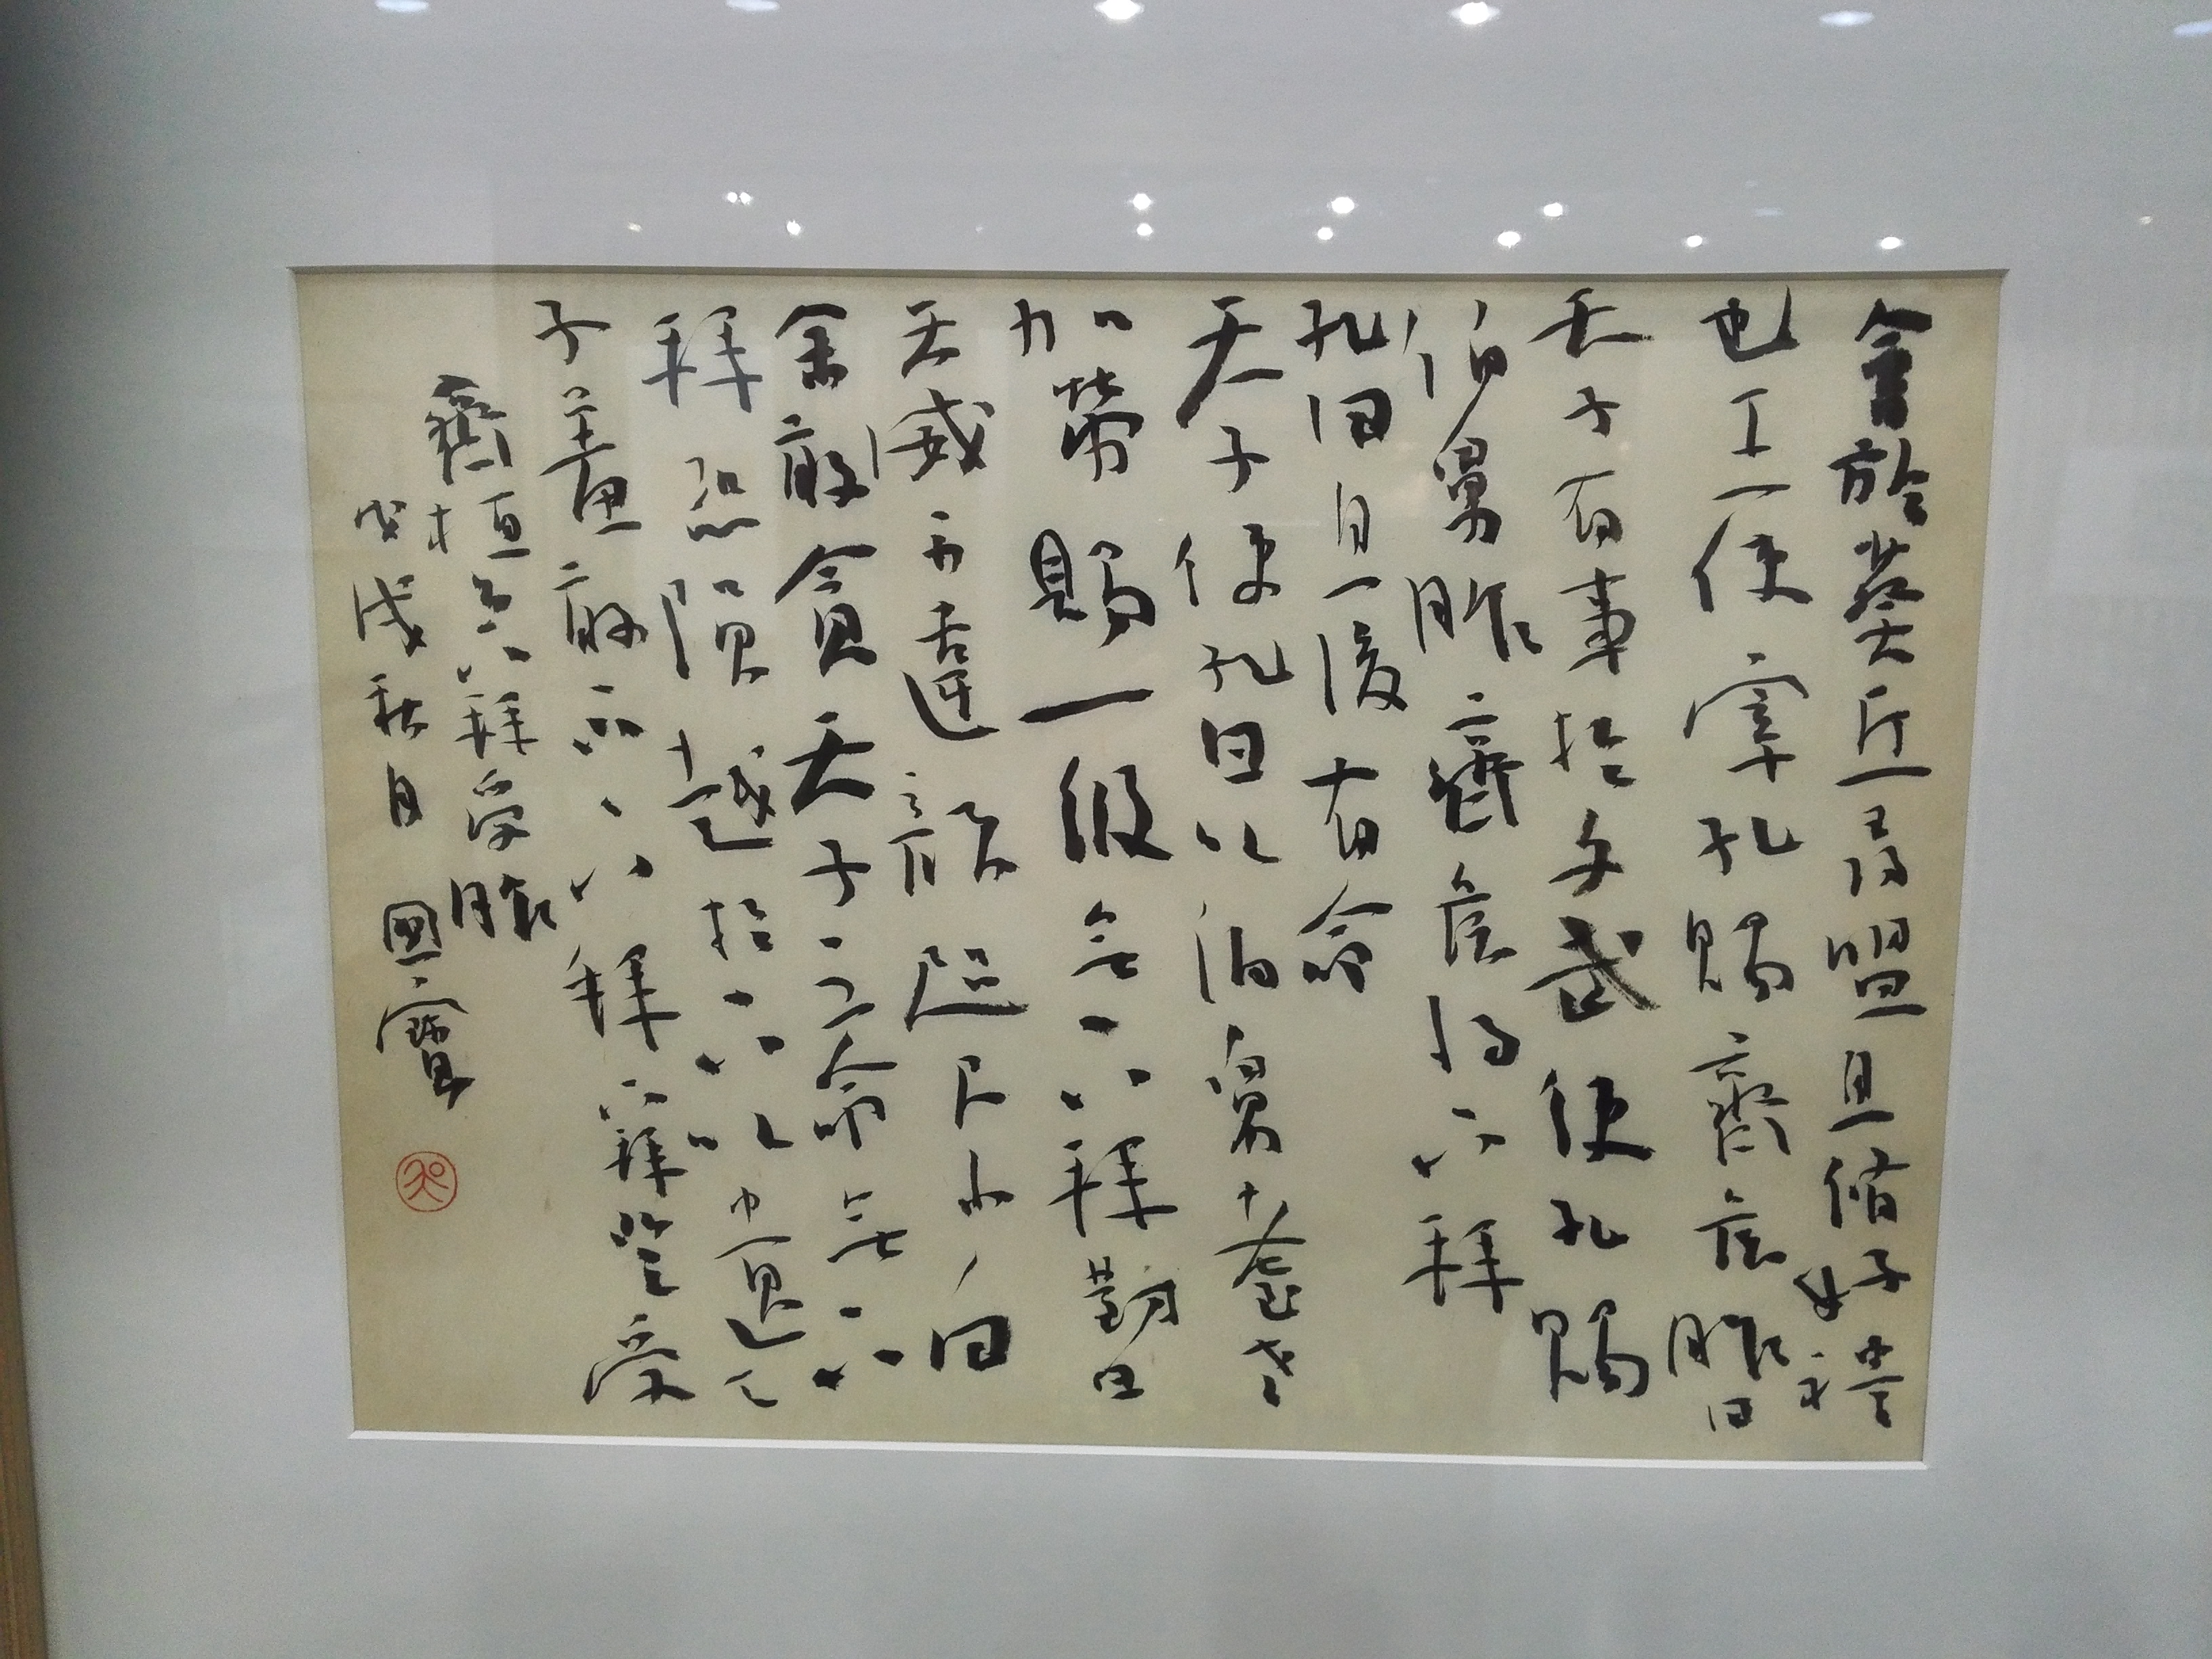 會於葵丘尋盟且脩好禮
也王使宰孔賜齊侯胙曰
天子有事於文武使孔賜
伯舅胙齊侯將下拜
孔曰且後有命
天子使孔曰以伯舅耋老
加勞賜一級無下拜對曰
天威不違顏咫尺小白
余敢貪天子之命無下
拜恐隕越於下以遺天
子羞敢不下拜下拜登受
齊桓公下拜受胙
戊戌秋月 國寶